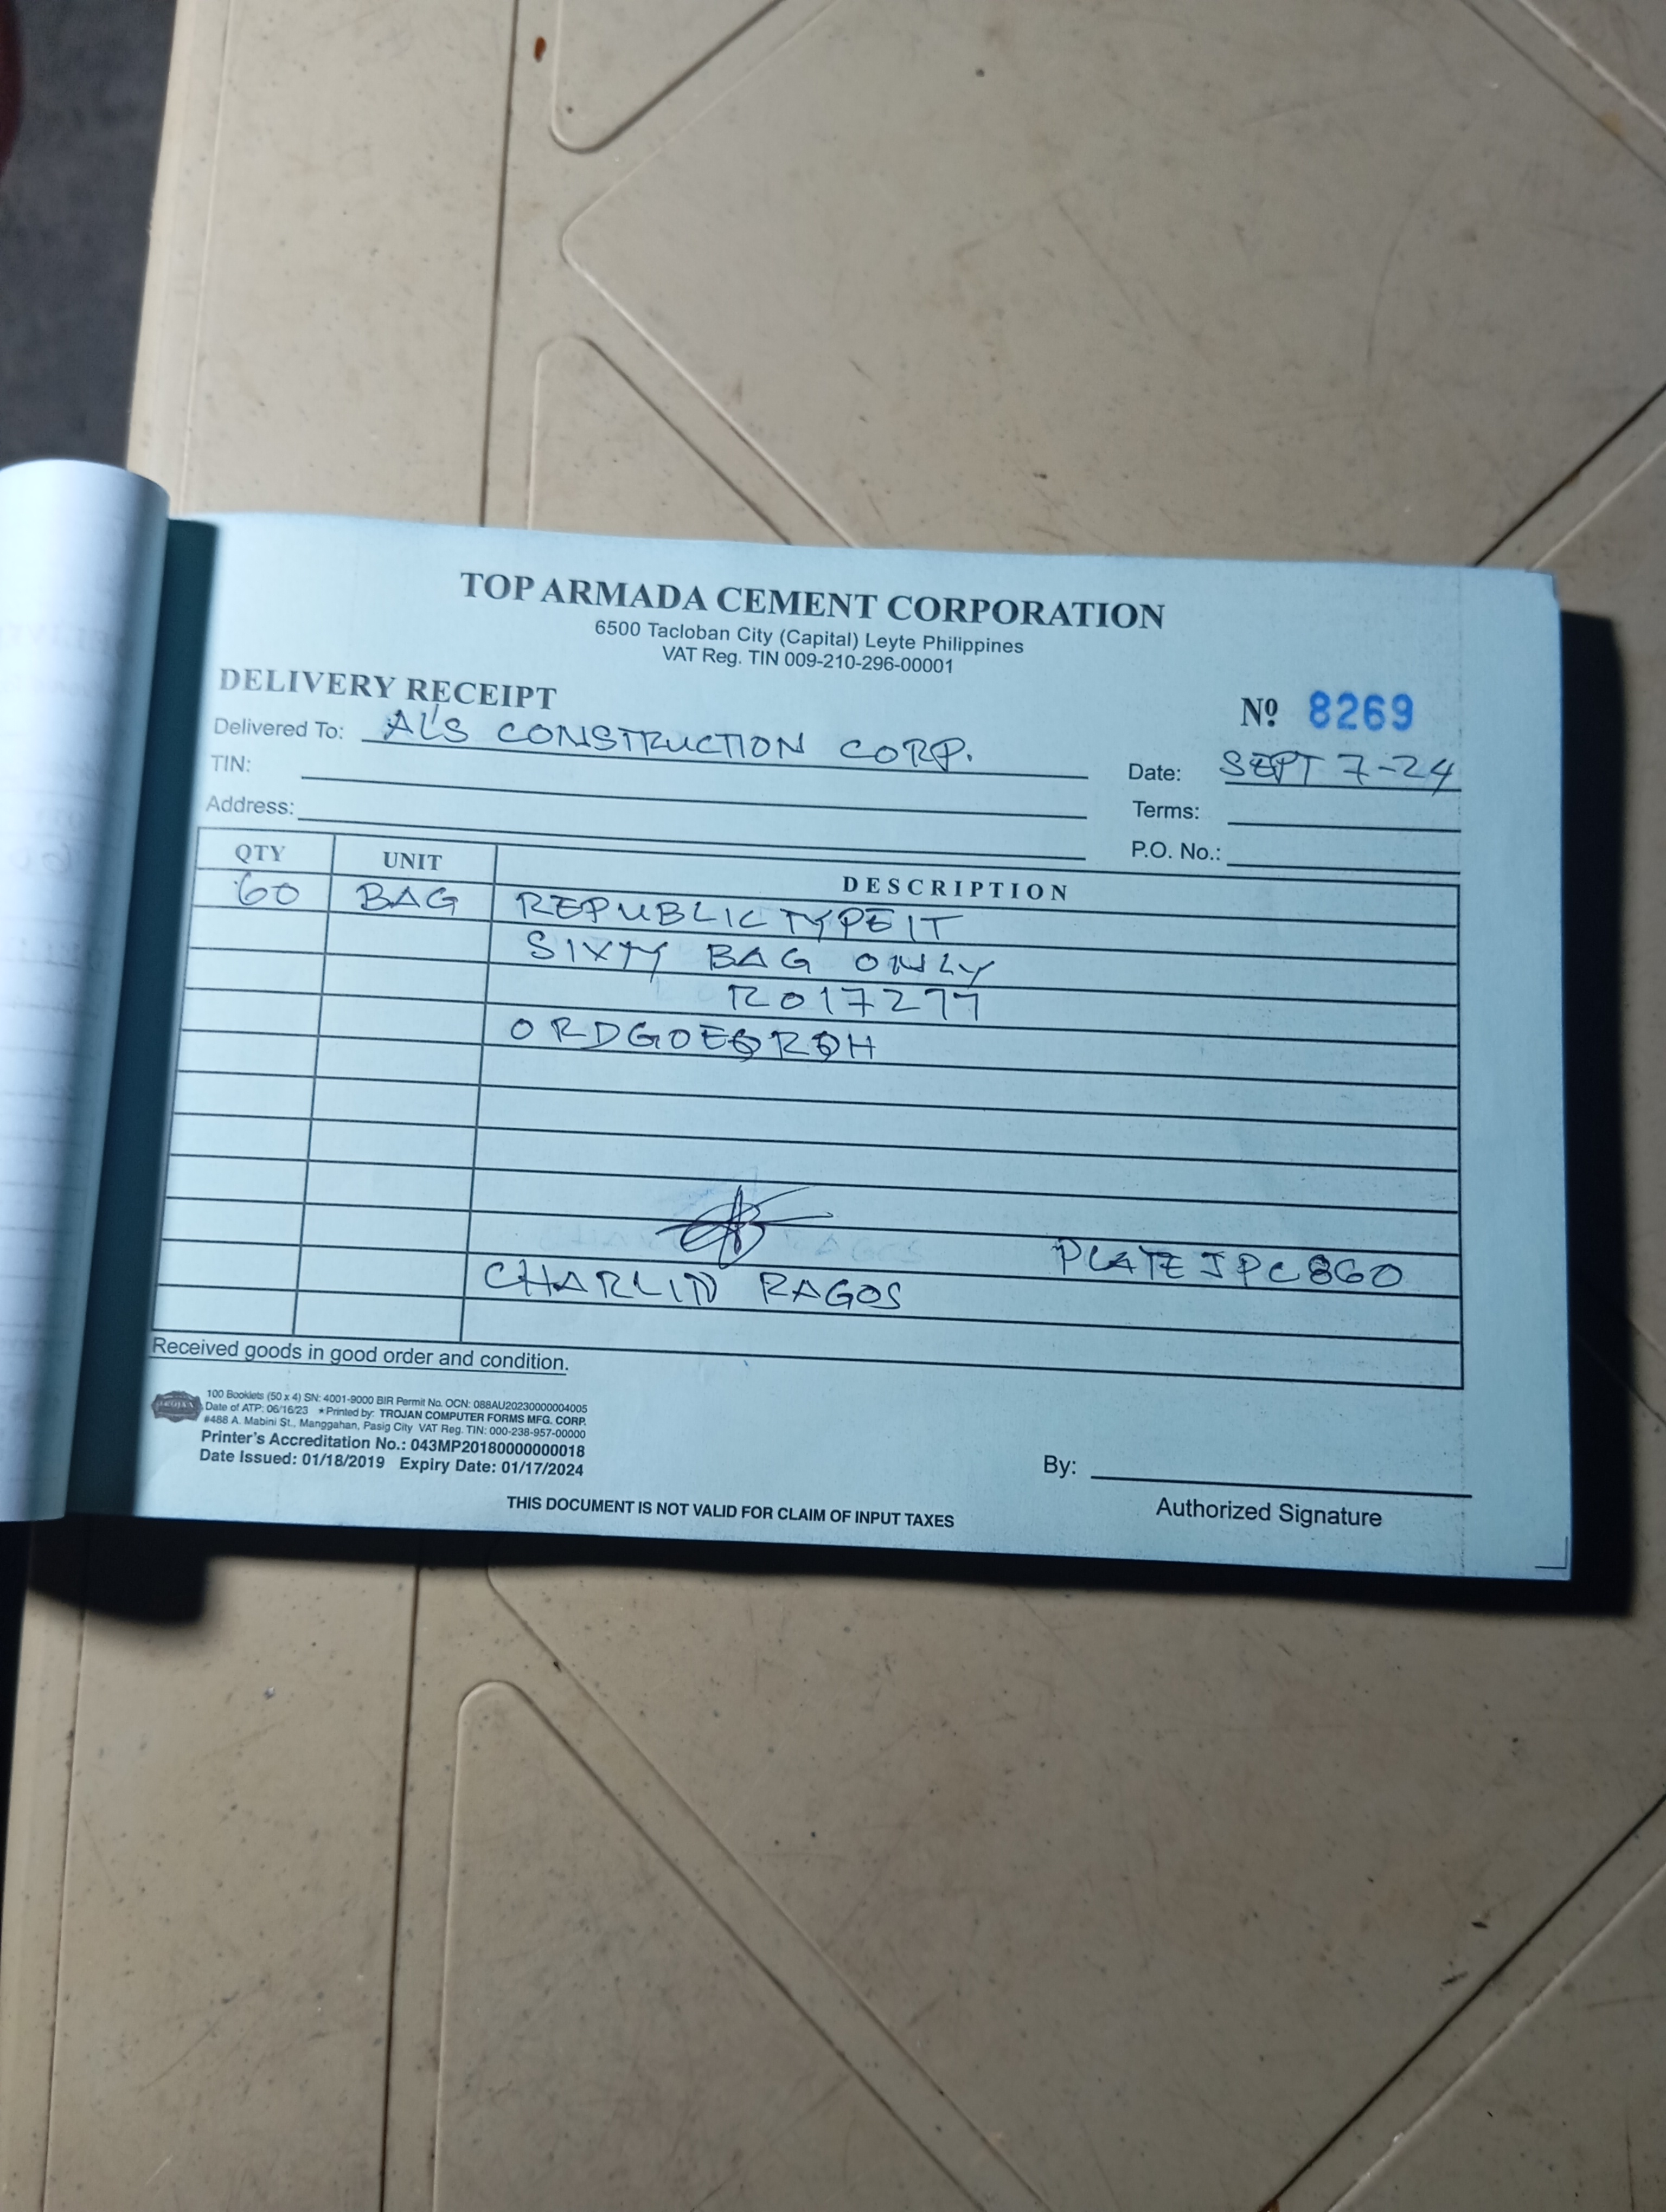 TOP ARMADA CEMENT CORPORATION
6500 Tacloban City (Capital) Leyte Philippines
VAT Reg. TIN 009-210-296-00001
DELIVERY RECEIPT
Nº 8269
Delivered To: AL'S CONSTRUCTION CORP.
Date: SEPT 7-24
TIN:
Terms:
Address:
P.O. No.:
QTY UNIT DESCRIPTION
60 BAG REPUBLIC TYPE 1T
SIXTY BAG ONLY
R017277
PLATE JPC860
CHARLIN RAGOS
Received goods in good order and condition.
100 Booklets (50 x 4) SN: 4001-9000 BIR Permit No. OCN: 088AU20230000004005
Date of ATP: 06/16/23 ★Printed by: TROJAN COMPUTER FORMS MFG. CORP.
#488 A. Mabini St., Manggahan, Pasig City VAT Reg. TIN: 000-238-957-00000
Printer's Accreditation No.: 043MP20180000000018
Date Issued: 01/18/2019 Expiry Date: 01/17/2024
By:
Authorized Signature
THIS DOCUMENT IS NOT VALID FOR CLAIM OF INPUT TAXES